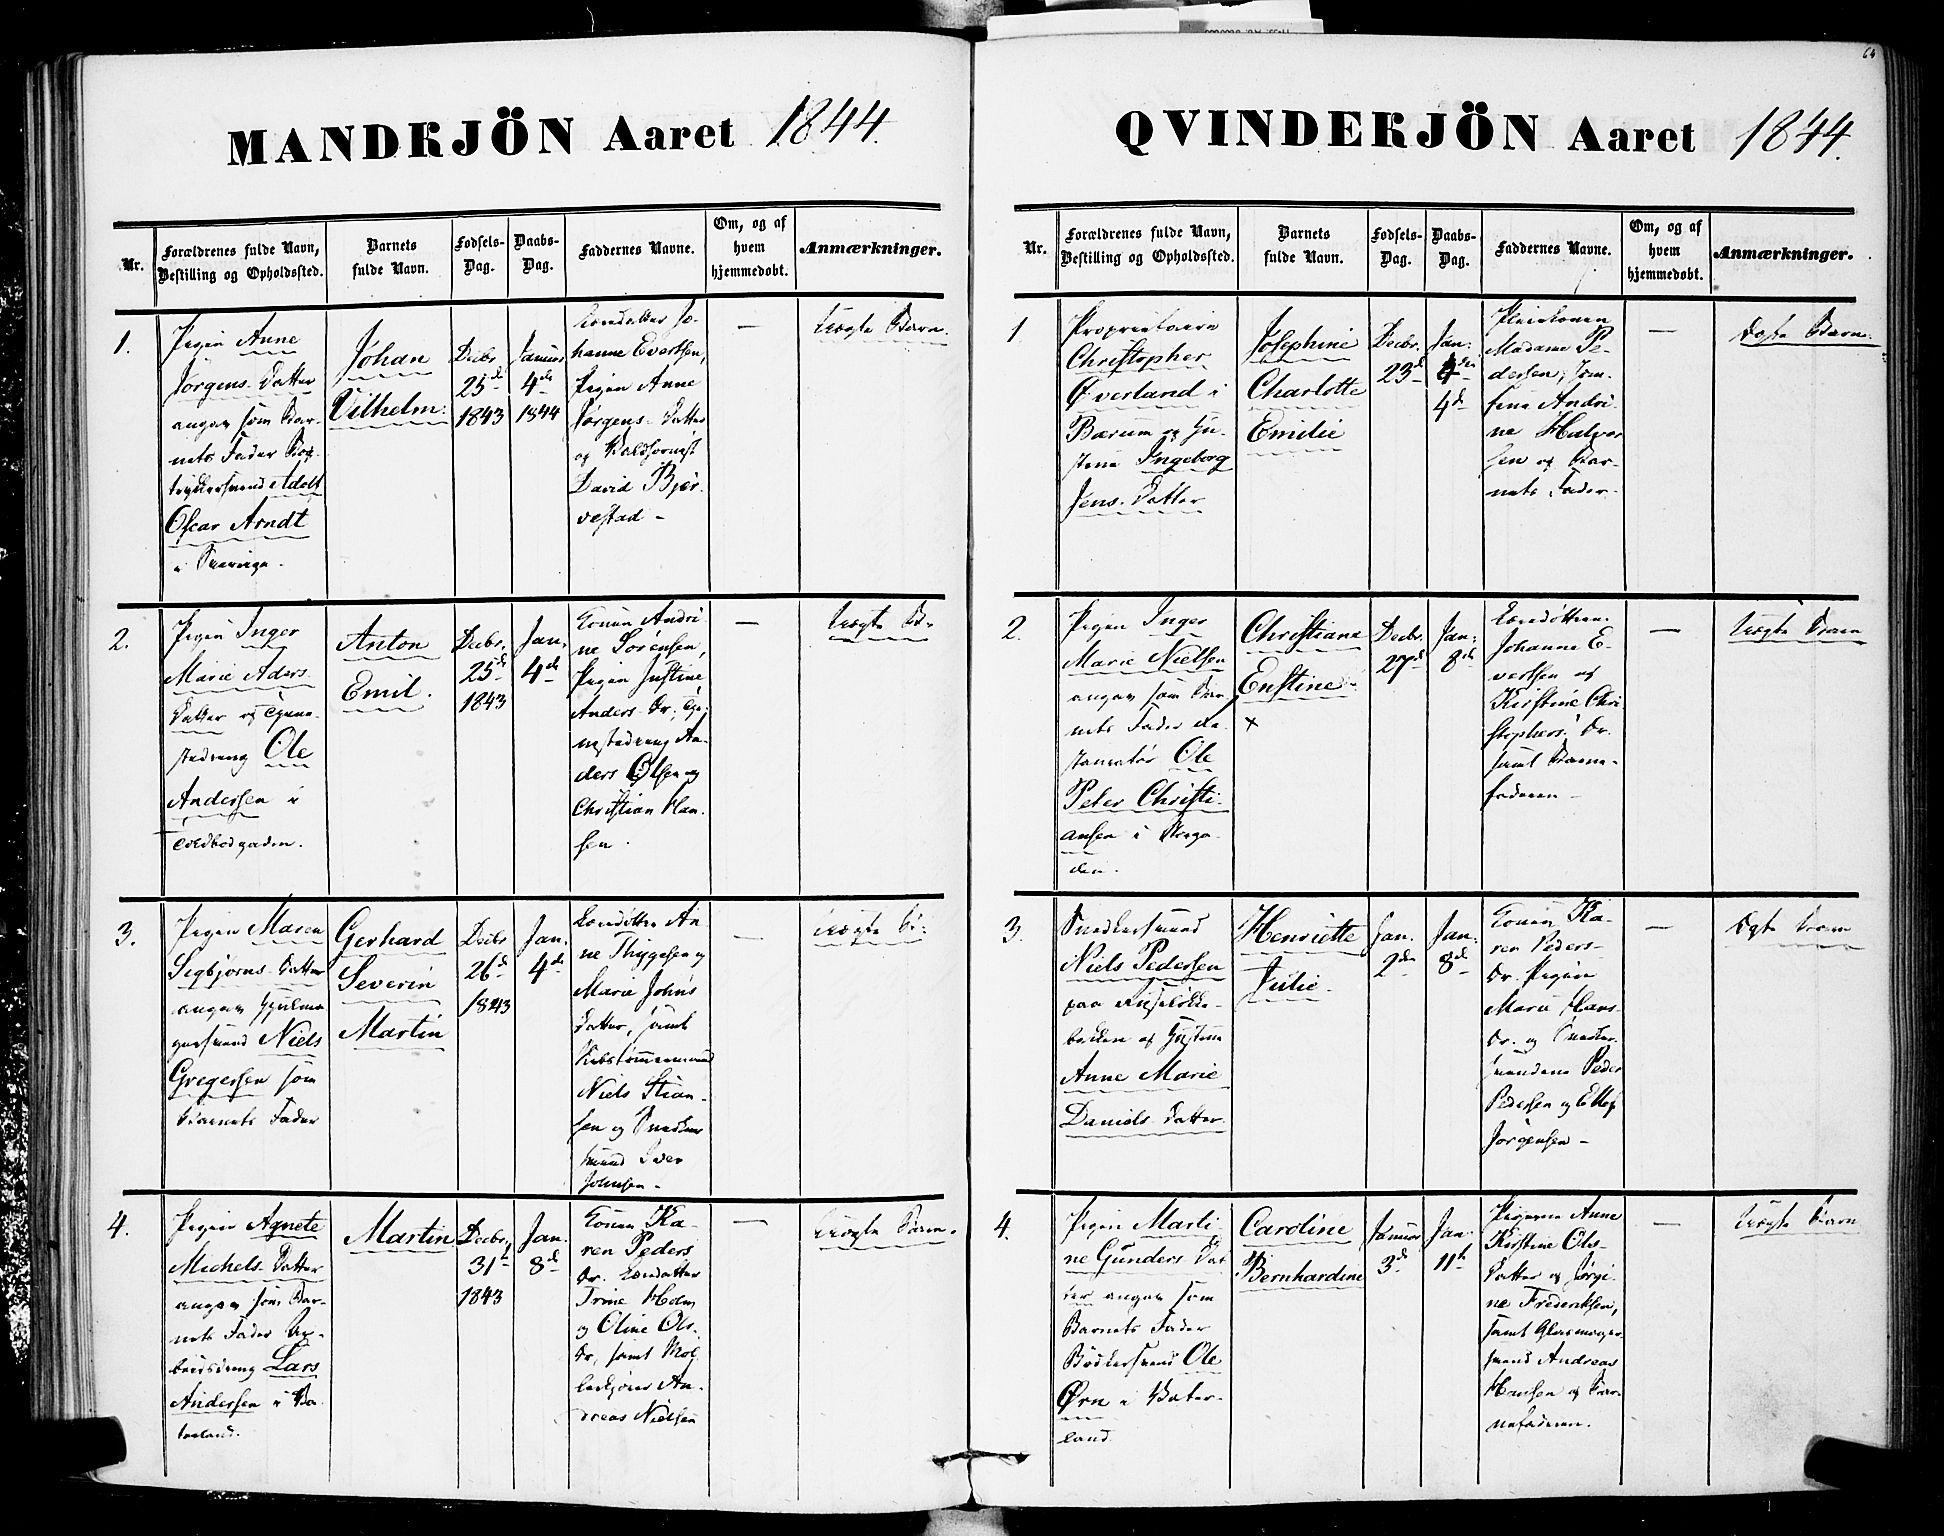 64
MANDKJÖN Aaret 1844.
Nr.
Forældrenes fulde Navn,
Bestilling og Opholdssted.
Barnets
fulde Navn.
Fødsels-
Dag.
Daabs-
Dag.
Faddernes Navne.
Om, og af
hvem
hjemmedøbt.
Anmærkninger.
1.
Pigen Anne
Jørgens-Datter
angav som Bar-
nets Fader Bog-
trykkersvend Adolf
Oscar Arndt
i
Johan
Vilhelm.
Decbr.
25de
1843
Januar
4de
1844
Jo-
hanne Evertsen,
Pigen Anne
Jørgens-Datter
og
David Bjør-
vestad -
—
Uægte Barn.
2.
Pigen Inger
Marie Aders-
Datter og
Ole
Andersen i
Toldbodgaden.
Anton
Emil.
Decbr.
25de
1843
Jan.
4de
Konen Andri-
ne Sørensen,
Pigen Justine
Anders-Dr.,
An-
ders Olsen og
Christian Han-
sen.
—
Uægte B.
3.
Pigen Maren
Segbjørns-Datter
angav
Niels
Gregersen som
Barnets Fader
Gerhard
Severin
Martin
Decbr
26de
1843
Jan.
4de
An-
ne Thygesen og
Marie Johns
Datter, samt
Niels Stian-
sen og Snedker
svend Iver
Johnsen -
—
Uægte B.
4.
Pigen Agnete
Michels-Datter
angav som Bar-
nets Fader Ar-
beidsdreng Lars
Andersen i Va-
terland.
Martin
Decbr.
31te
1843
Jan.
8de
Konen Ka-
ren Peders
Dr.
Trine Holm
og Oline Ols-
Dr, samt Møl-
An-
dreas Nielsen
—
Uægte Barn.
QVINDEKJÖN Aaret 1844.
Nr.
Forældrenes fulde Navn,
Bestilling og Opholdssted.
Barnets
fulde Navn.
Fødsels-
Dag.
Daabs-
Dag.
Faddernes Navne.
Om, og af
hvem
hjemmedøbt.
Anmærkninger.
1
Proprietairen
Christopher
Øverland i
Bærum og Hu-
struen Ingeborg
Jens-Datter
Josephine
Charlotte
Emilie
Decbr.
23de
Jan.
4de
Madame Pe-
dersen, Jom-
fru Andri-
ne Halvor
sen og Bar-
nets Fader.
—
Ægte Barn.
2.
Pigen Inger
Marie Nielsen
angav som Bar-
nets Fader
Ole
Peter Christi-
ansen i
den.
Christiane
Enstine
x
Decbr.
27de
Jan:
8de
Johanne E-
vertsen og
Kirstine Chri
stophers Dr.
samt Barne-
faderen -
—
Uægte Barn
3.
Snedkersvend
Niels Pedersen
paa Ruseløkk-
bakken og Hustrue
Anne Marie
Daniels-Datter.
Henriette
Julie.
Jan.
2den
Jan:
8de
Konen Ka-
ren Peders-
Dr. Pigen
Marie Hans-
Dr. og Snedker
svendene Peder
Pedersen og Ellef
Jørgensen -
—
Ægte Barn
4.
Pigen Marti-
ne Gunders Dat
ter angav som
Barnets Fader
Bødkersvend Ole
Ørn i Vater-
land.
Caroline
Bernhardine
Januar
3de
Jan.
11te
Pigerne Anne
Kirstine Ols-
Datter og Jørgi-
ne Frederiksen,
samt Glasmager
svend Andreas
Hansen og Bar-
nefaderen.
—
Uægte Barn